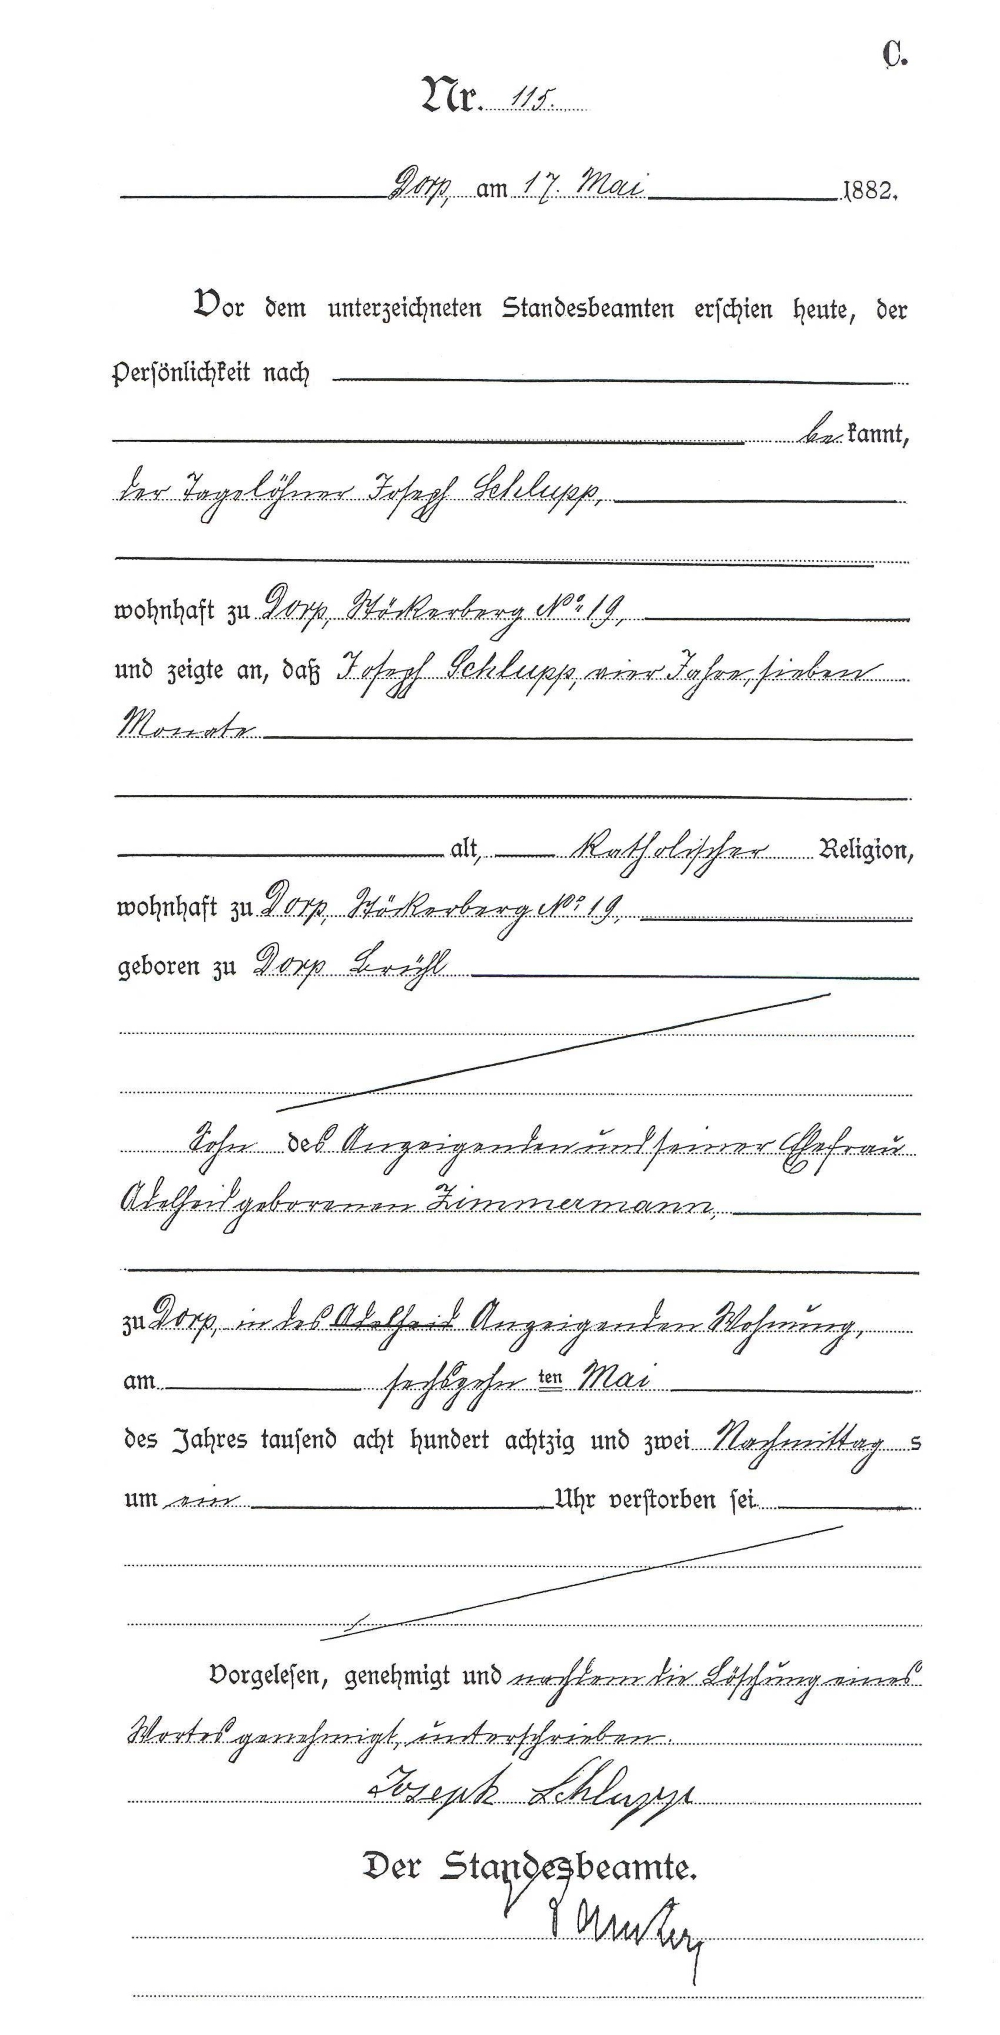 C.
Nr. 115.
Dorp, am 17. Mai 1882.
Vor dem unterzeichneten Standesbeamten erschien heute, der
Persönlichkeit nach
be kannt,
der Tagelöhner Joseph Schlupp,
wohnhaft zu Dorp, Stöckerberg No 19,
und zeigte an, daß Joseph Schlupp, vier Jahre, sieben
Monate
alt, katholischer Religion,
wohnhaft zu Dorp, Stöckerberg No 19,
geboren zu Dorp Brühl
Sohn des Anzeigenden und seiner Ehefrau
Adelheid geborenen Zimmermann,
zu Dorp, in des Adelheid Anzeigenden Wohnung,
am sechszehn ten Mai
des Jahres tausend acht hundert achtzig und zwei Nachmittag s
um ein Uhr verstorben sei
Vorgelesen, genehmigt und nachdem die Löschung eines
Wortes genehmigt, unterschrieben.
Joseph Schlupp
Der Standesbeamte.